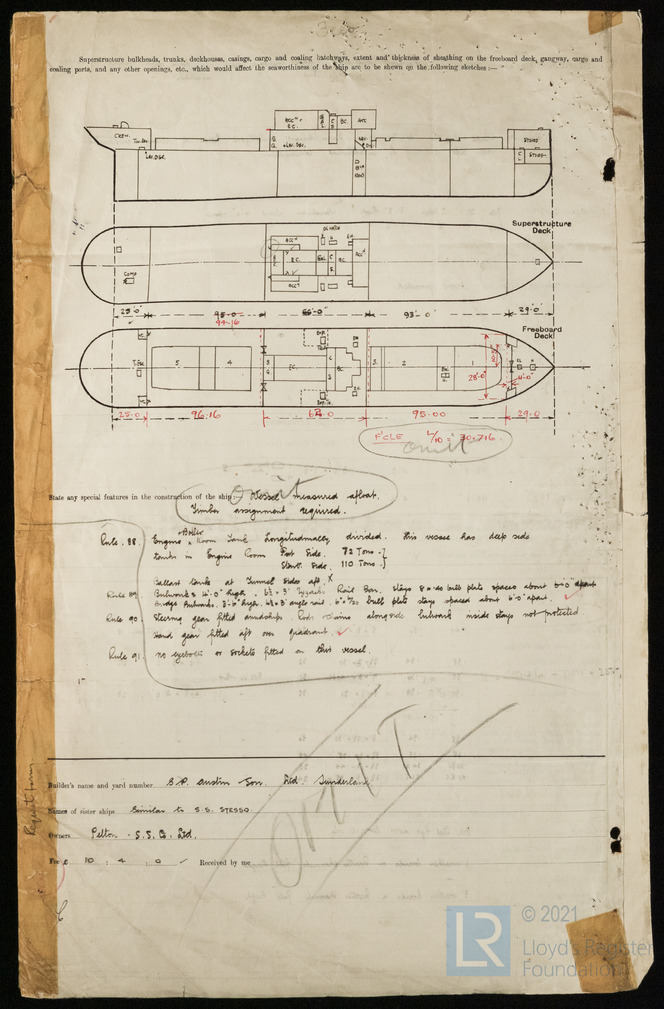 Superstructure bulkheads, trunks, deckhouses, casings, cargo and coaling hatchways, extent and thickness of sheathing on the freeboard deck, gangway, cargo and
coaling ports, and any other openings, etc., which would affect the seaworthiness of the ship are to be shewn on the following sketches :—
CREW
STORES
STORES
Superstructure
Deck
25'-0" 95-0 66'-0" 93'-0" 29'-0"
94-16
Freeboard
Deck
5. 4 2 1
28'-0"
25-0 96.16 64.0 95.00 29.0
F'CLE L/10 = 30.716.
Omit
State any special features in the construction of the ship:— Vessel measured afloat.
Omit
Timber assignment required.
Rule. 88 Engine & Boiler Room Tank Longitudinally divided. This vessel has deep side
tanks in Engine Room Port Side. 72 Tons.
Starb. Side. 110 Tons.
Ballast tanks at Tunnel sides aft.
Rule 89. Bulwarks 4'-0" high. Rail Bar. Stays bulb plate spaces about apart
Bridge Bulwarks. 3'-6" high. angle rail. bulb plate stays spaced about 6'-0" apart.
Rule 90. Steering gear fitted amidships. Rods & chains alongside bulwark inside stays not protected
Hand gear fitted aft over quadrant.
Rule 91. no eyebolts or sockets fitted on this vessel.
OMIT
Builder's name and yard number S.P. Austin Son. Ltd. Sunderland
Names of sister ships Similar to S.S. STESSO
Owners Pelton S.S. Co. Ltd.
Fee £ 10 : 4 : 0 Received by me
LR
© 2021
Lloyd's Register
Foundation